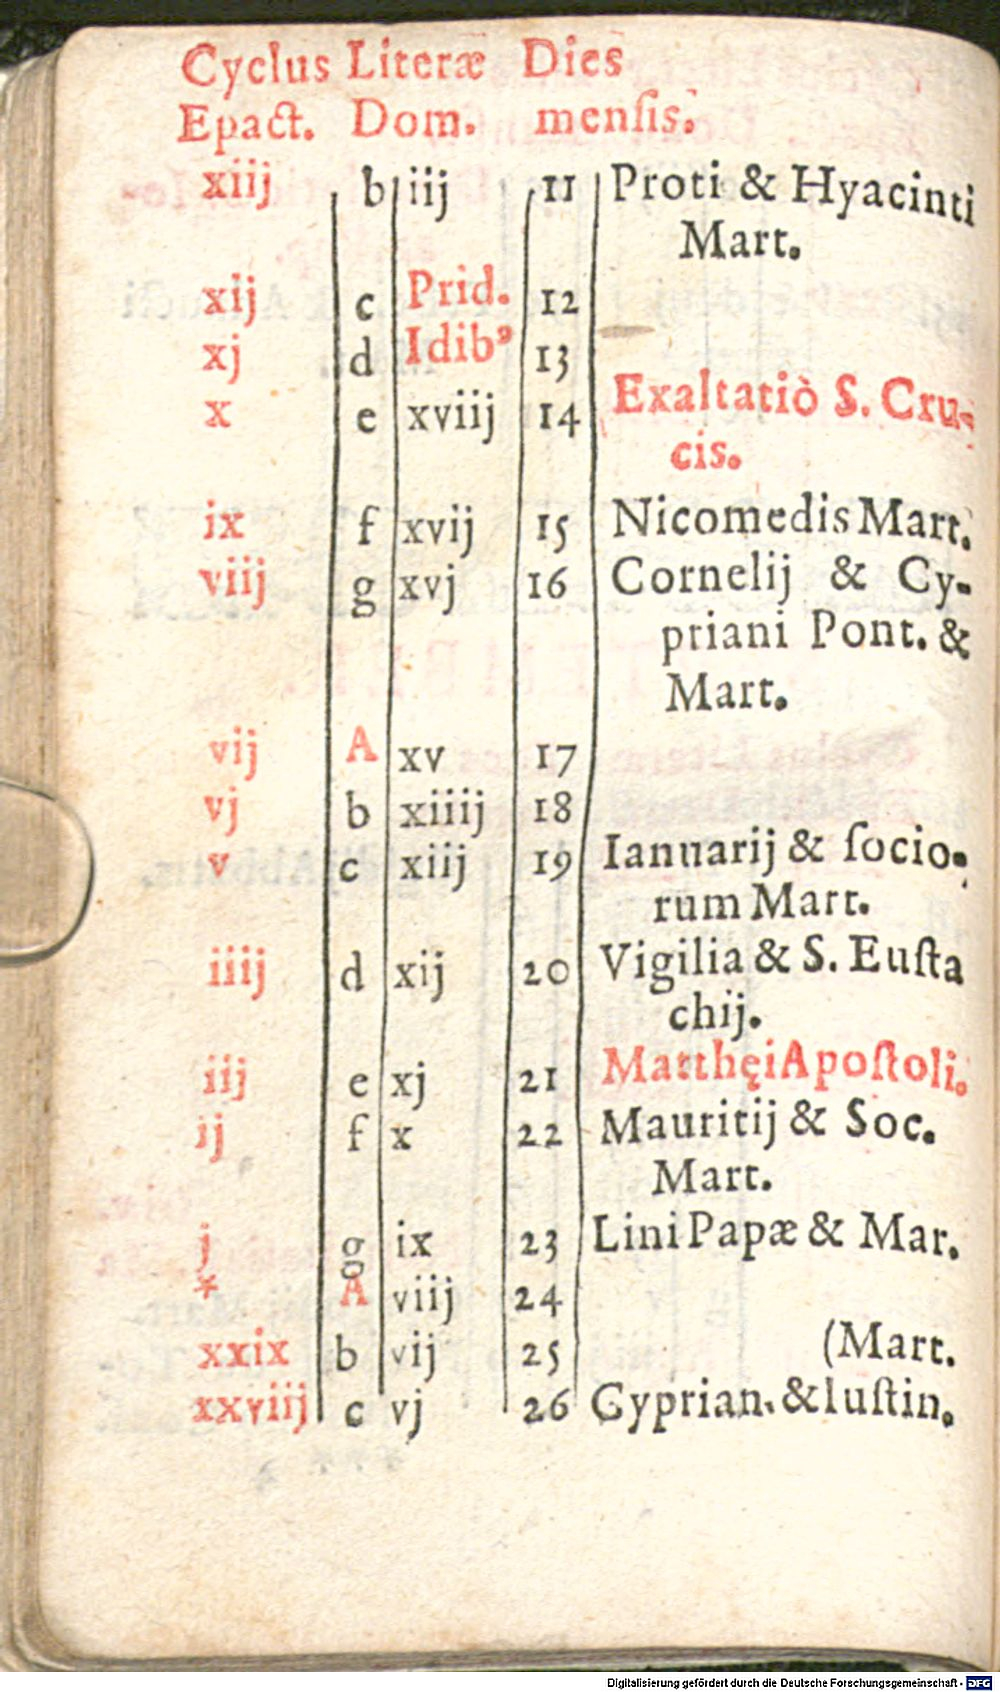 Cyclus Literæ Dies
Epact. Dom. mensis.
xiij b iij 11 Proti & Hyacinti
Mart.
xij c Prid. 12
xj d Idibꝰ 13
x e xviij 14 Exaltatiò S. Cru-
cis.
ix f xvij 15 Nicomedis Mart.
viij g xvj 16 Cornelij & Cy-
priani Pont. &
Mart.
vij A xv 17
vj b xiiij 18
v c xiij 19 Ianuarij & ſocio-
rum Mart.
iiij d xij 20 Vigilia & S. Euſta
chij.
iij e xj 21 Matthęi Apoſtoli.
ij f x 22 Mauritij & Soc.
Mart.
j g ix 23 Lini Papæ & Mar.
* A viij 24
xxix b vij 25 (Mart.
xxviij c vj 26 Cyprian. & Iuſtin.
Digitalisierung gefördert durch die Deutsche Forschungsgemeinschaft - DFG